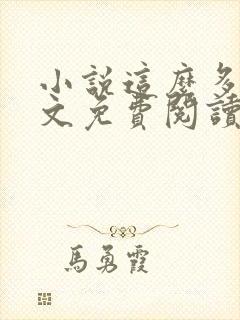 小說這麼多
文免費閱讀
馬勇霞